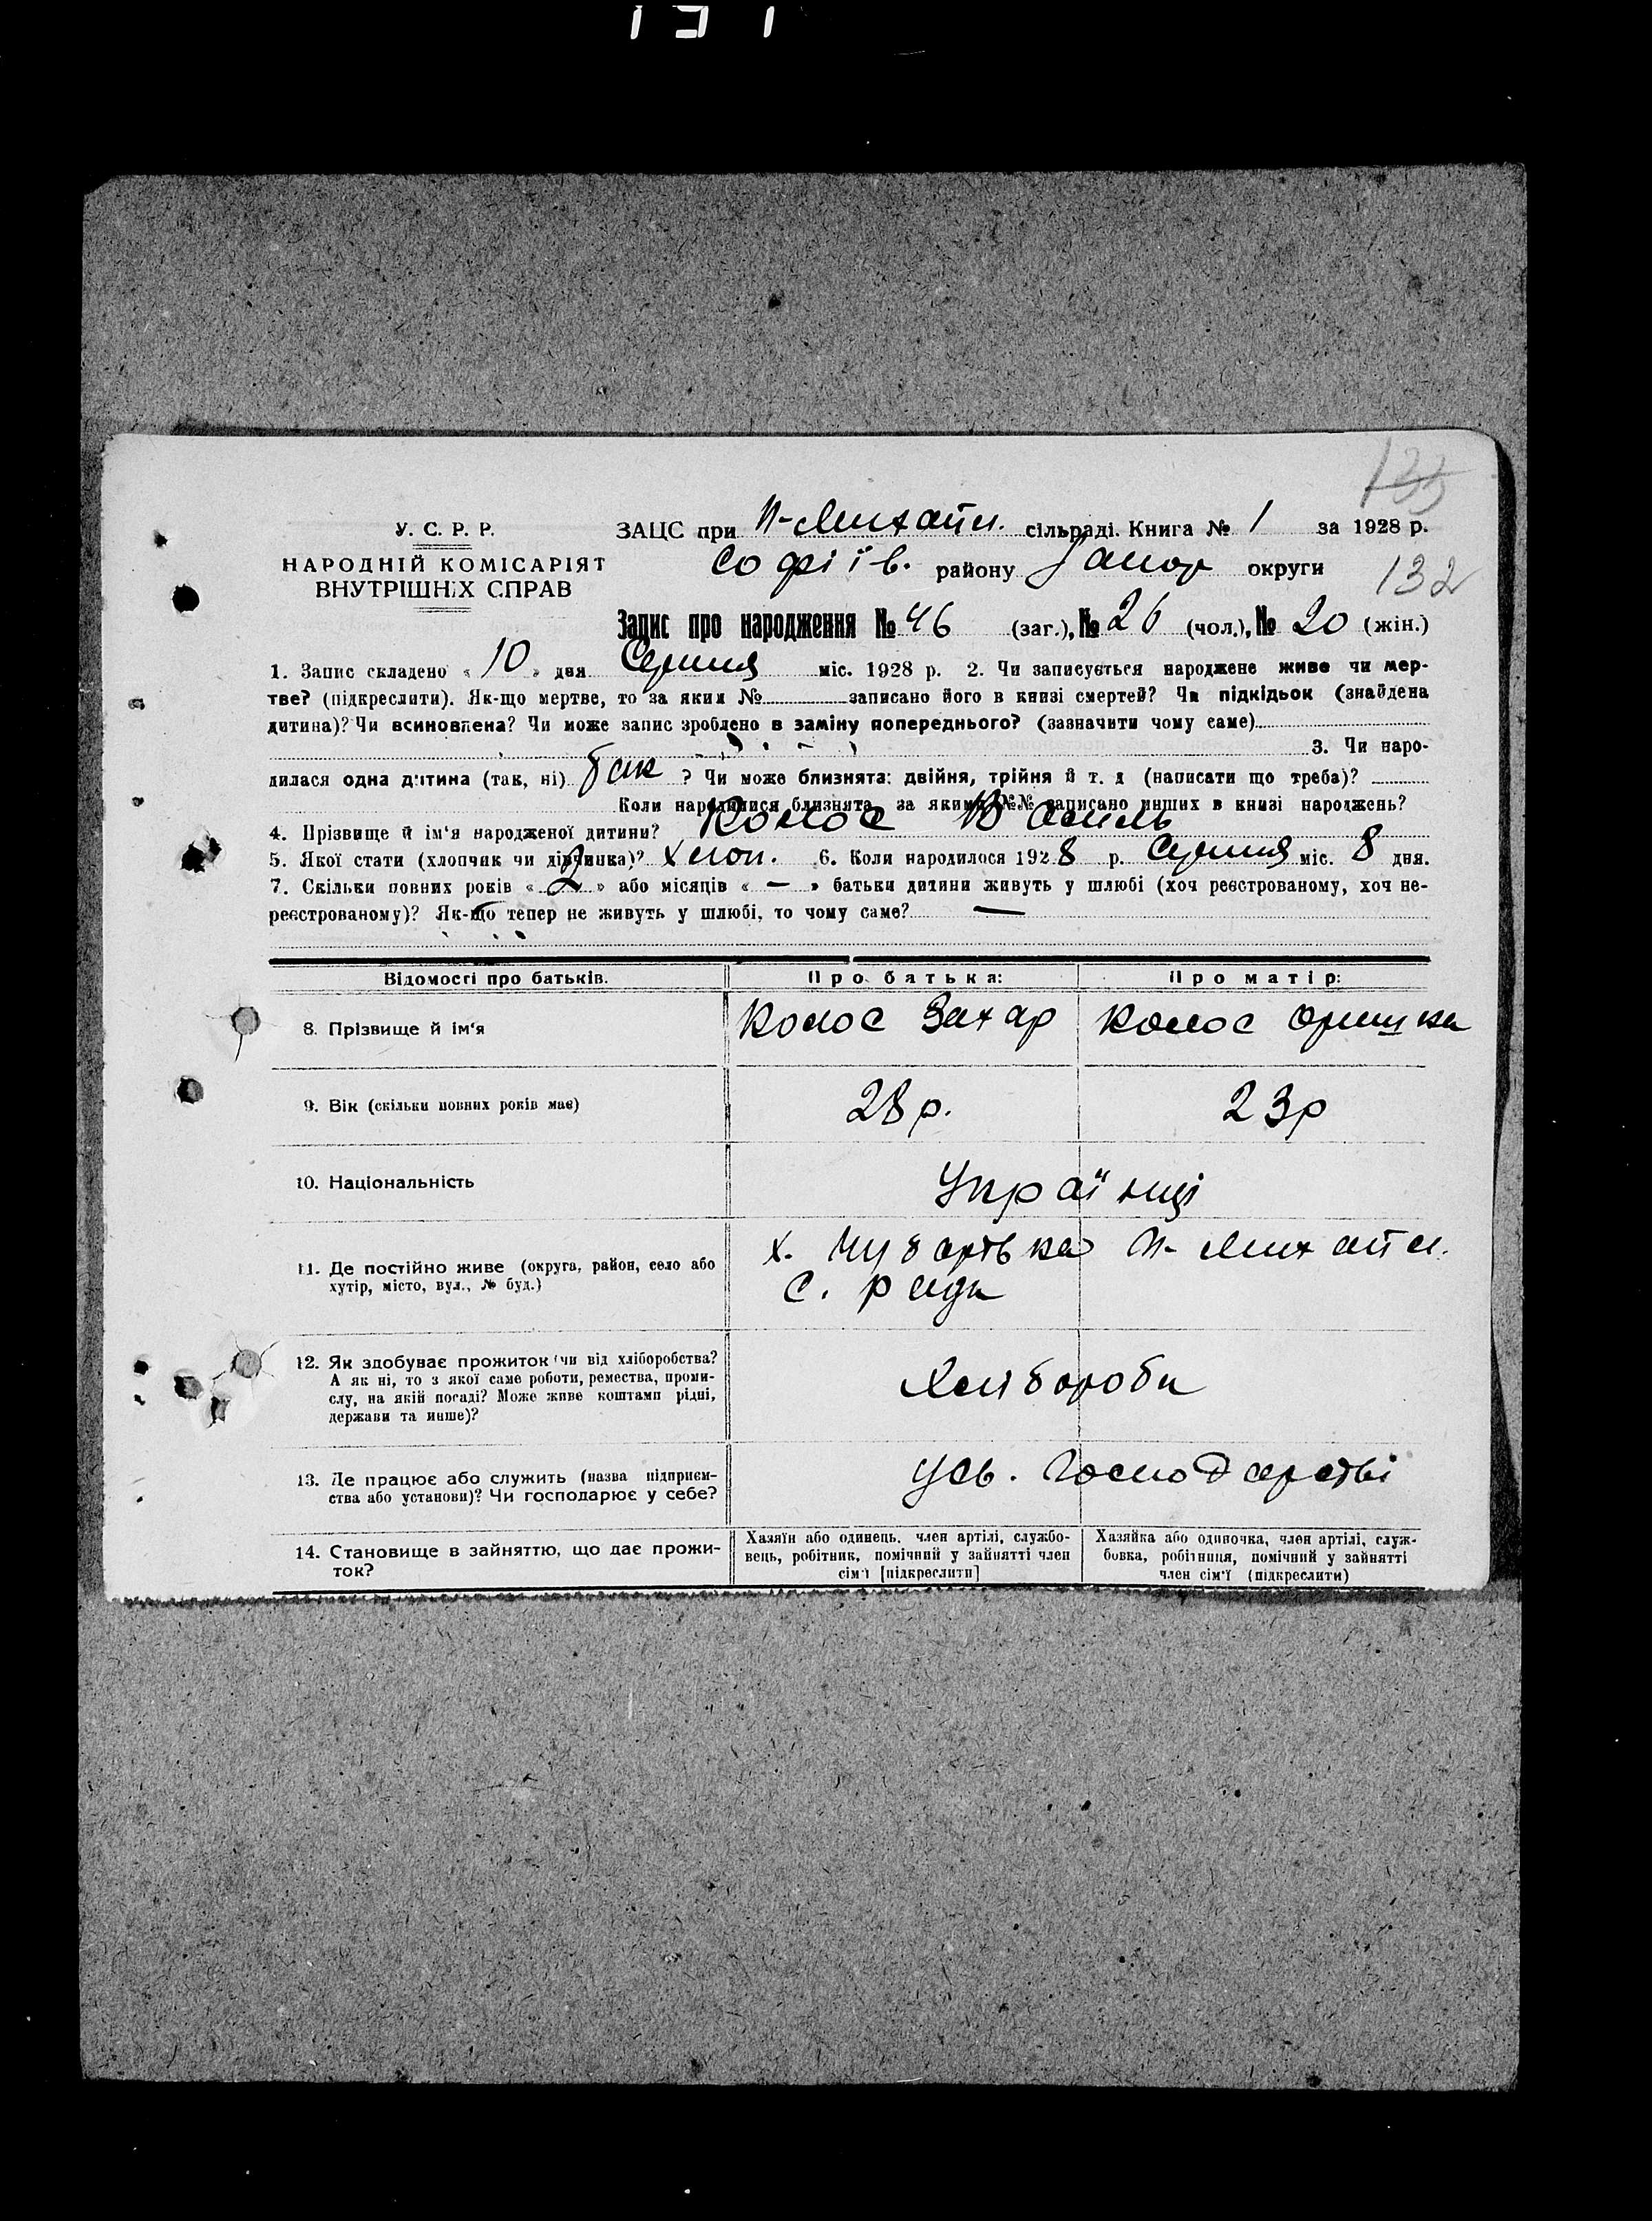 131
135
У. С. Р. Р.
НАРОДНІЙ КОМІСАРІЯТ
ВНУТРІШНІХ СПРАВ
ЗАЦС при Н-Михайл. сільраді. Книга № 1 за 1928 р.
Софіїв. району Запор округи
132
Запис про народження № 46 (заг.), № 26 (чол.), № 20 (жін.)
1. Запис складено « 10 » дня Серпня міс. 1928 р. 2. Чи записується народжене живе чи мер-
тве? (підкреслити). Як-що мертве, то за яким № записано його в книзі смертей? Чи підкідьок (знайдена
дитина)? Чи всиновлена? Чи може запис зроблено в заміну попереднього? (зазначити чому саме)
3. Чи наро-
дилася одна дитина (так, ні) так ? Чи може близнята: двійня, трійня й т. д (написати що треба)?
Коли народилися близнята, за якими №№ записано инших в книзі народжень?
4. Прізвище й ім'я народженої дитини? Колос Василь
5. Якої стати (хлопчик чи дівчинка)? хлоп. 6. Коли народилося 1928 р. Серпня міс. 8 дня.
7. Скільки повних років « 2 » або місяців « — » батьки дитини живуть у шлюбі (хоч реєстрованому, хоч не-
реєстрованому)? Як-що тепер не живуть у шлюбі, то чому саме? —
Відомості про батьків. Про батька: Про матір:
8. Прізвище й ім'я Колос Захар Колос Оришка
9. Вік (скільки повних років має) 28 р. 23 р
10. Національність Українці
11. Де постійно живе (округа, район, село або
хутір, місто, вул., № буд.)
х. Чубарівка Н- Михайл.
с. ради
12. Як здобуває прожиток (чи від хліборобства?
А як ні, то з якої саме роботи, ремества, проми-
слу, на якій посаді? Може живе коштами рідні,
держави та инше)?
Хлібороби
13. Де працює або служить (назва підприєм-
ства або установи)? Чи господарює у себе?
У св. господарстві
14. Становище в зайняттю, що дає прожи-
ток?
Хазяїн або одинець, член артілі, службо-
вець, робітник, помічний у зайнятті член
сім'ї [підкреслити]
Хазяйка або одиночка, член артілі, служ-
бовка, робітниця, помічний у зайнятті
член сім'ї (підкреслити)